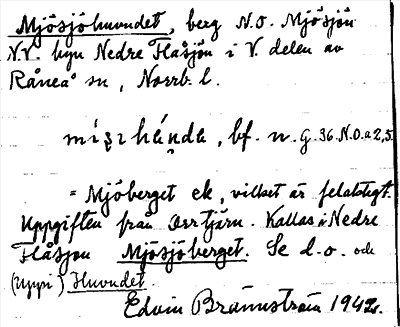 Mjösjöhuvudet, berg N.O. Mjösjön
N.V. byn Nedre Flåsjön i V. delen av
Råneå sn, Norrb. l.
bf. n. G. 36. N.O. a 2,5.
= Mjöberget ek, vilket är felaktigt.
Uppgiften från Orrtjärn. Kallas i Nedre
Flåsjon Mjösjöberget. Se d.o. och
(uppi) Huvudet.
Edvin Brännström 1942.